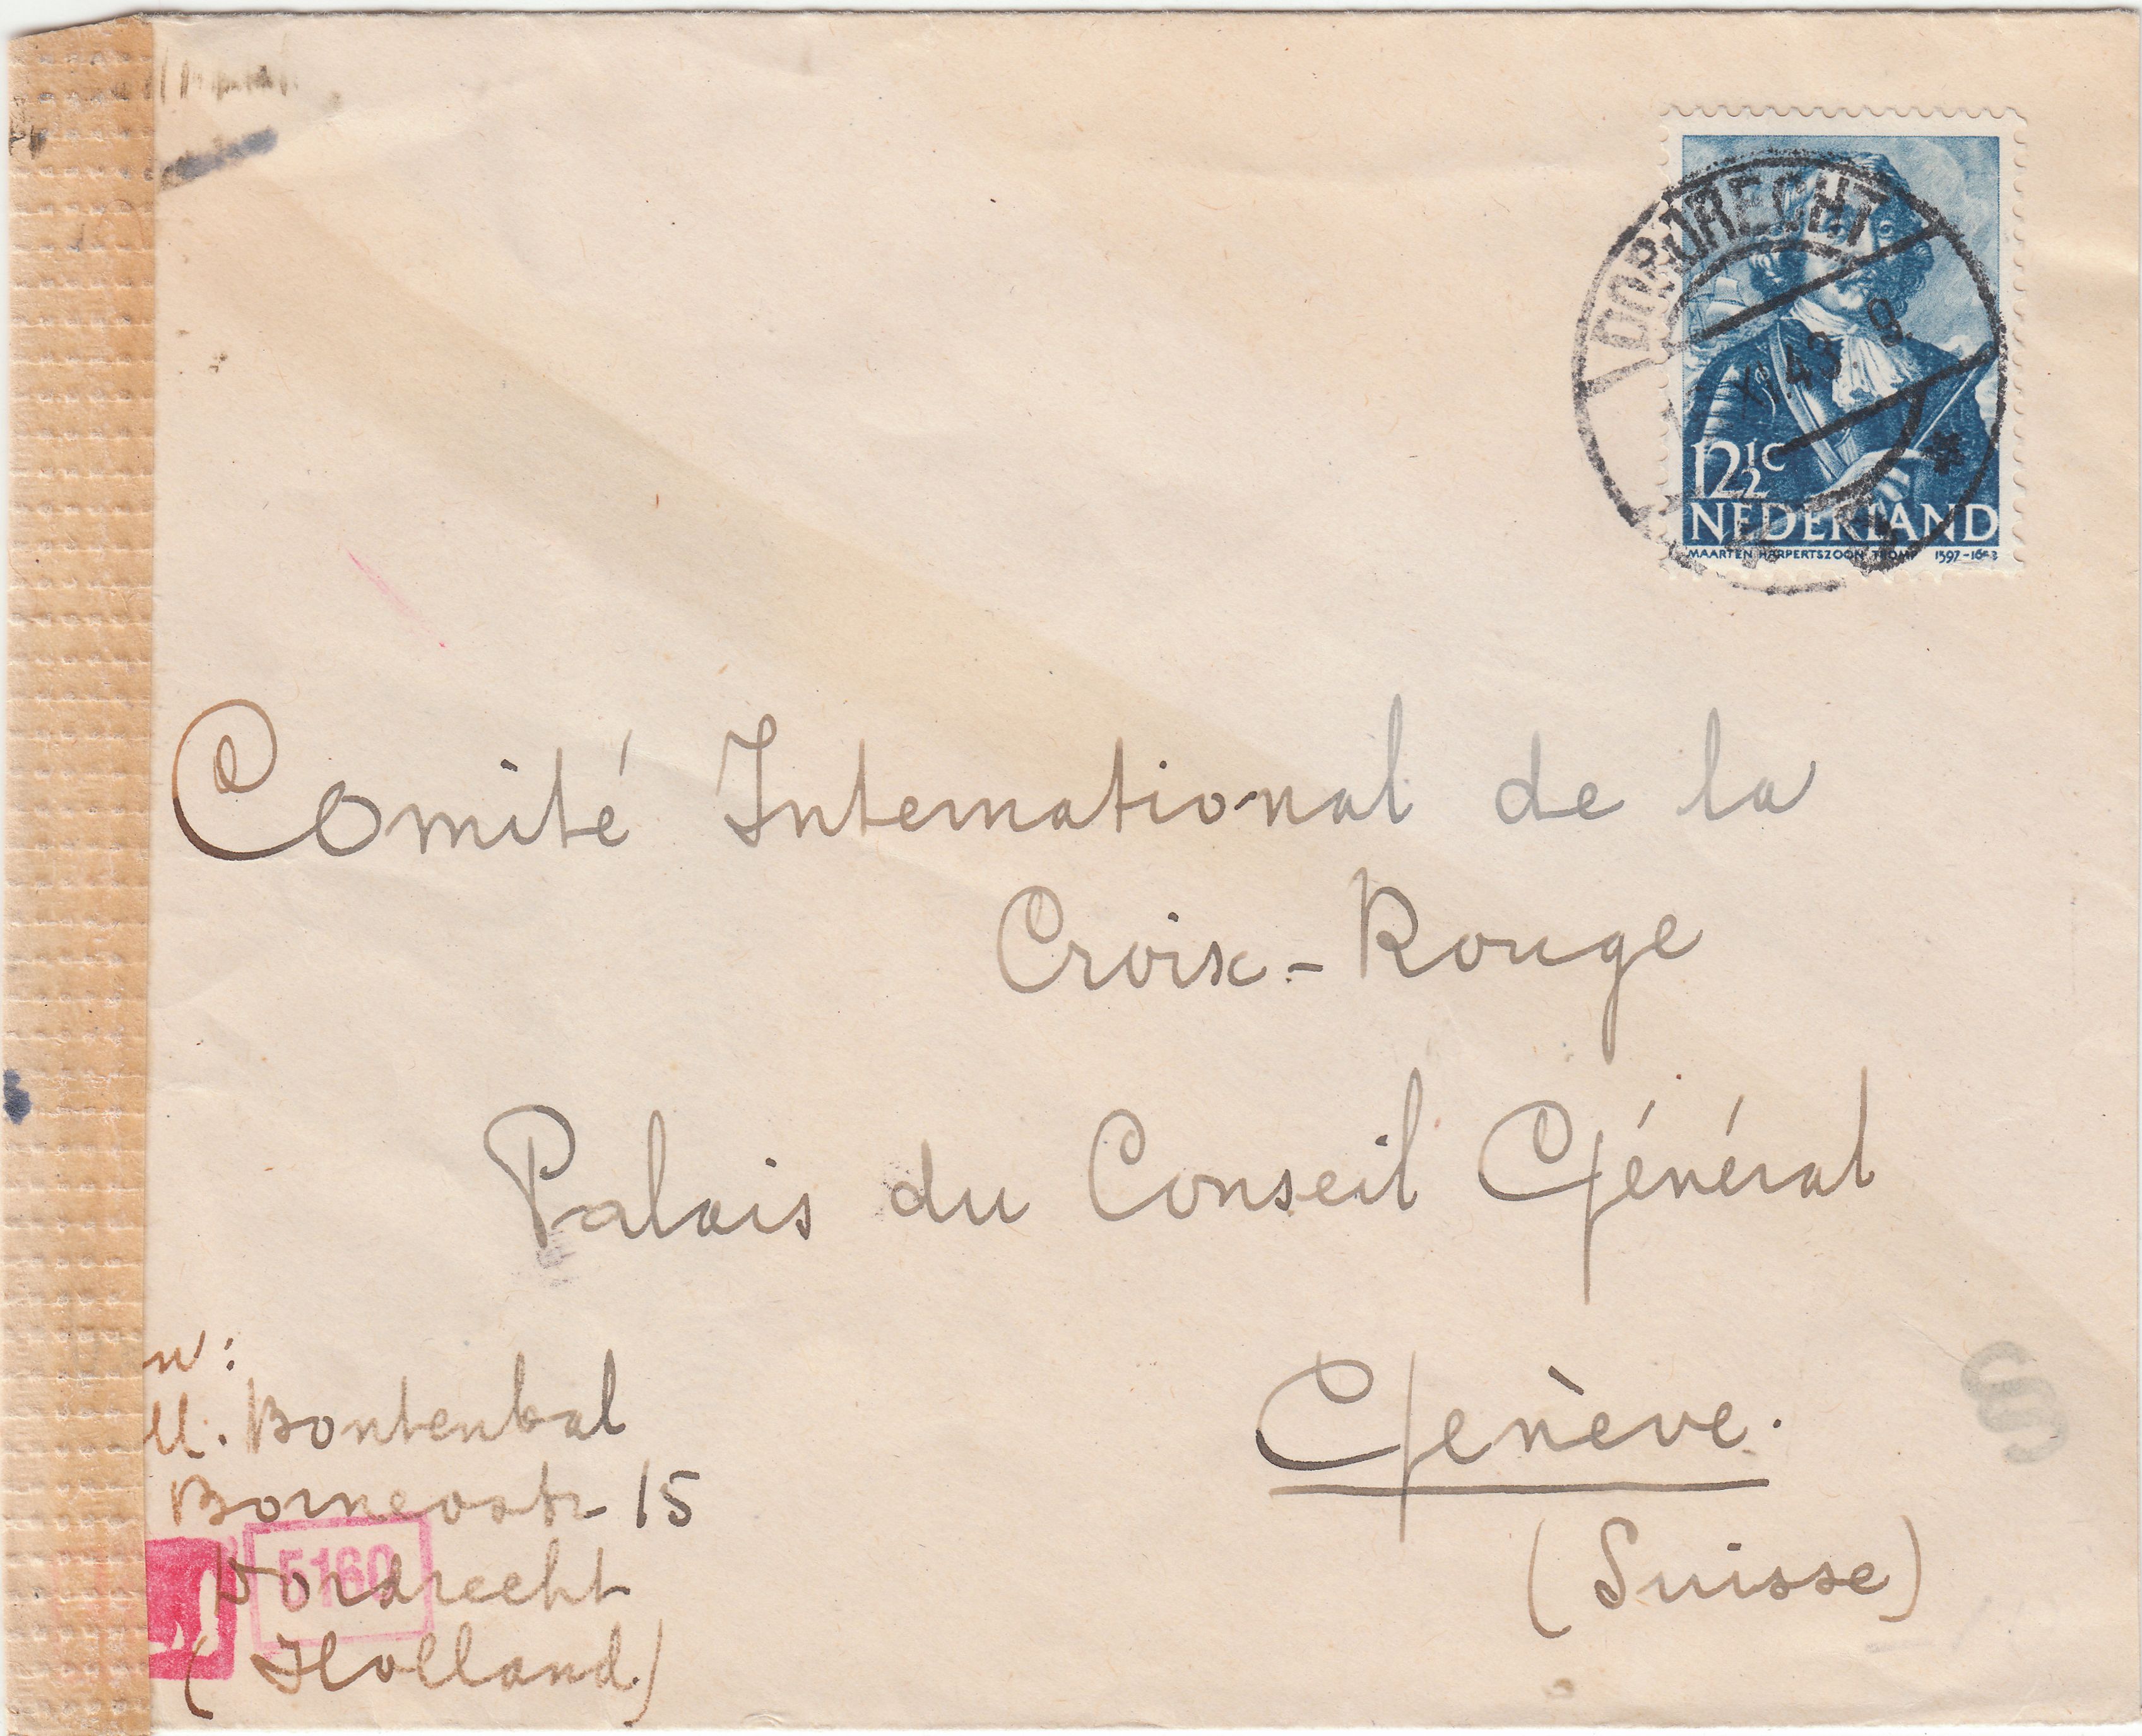 DORDRECHT
XI 43 9
12½c
NEDERLAND
MAARTEN HARPERTSZOON TROMP 1597-1653
Comité International de la
Croix-Rouge
Palais du Conseil Général
Genève.
(Suisse)
M. Bontenbal
Borneostr 15
Dordrecht
(Holland)
5160